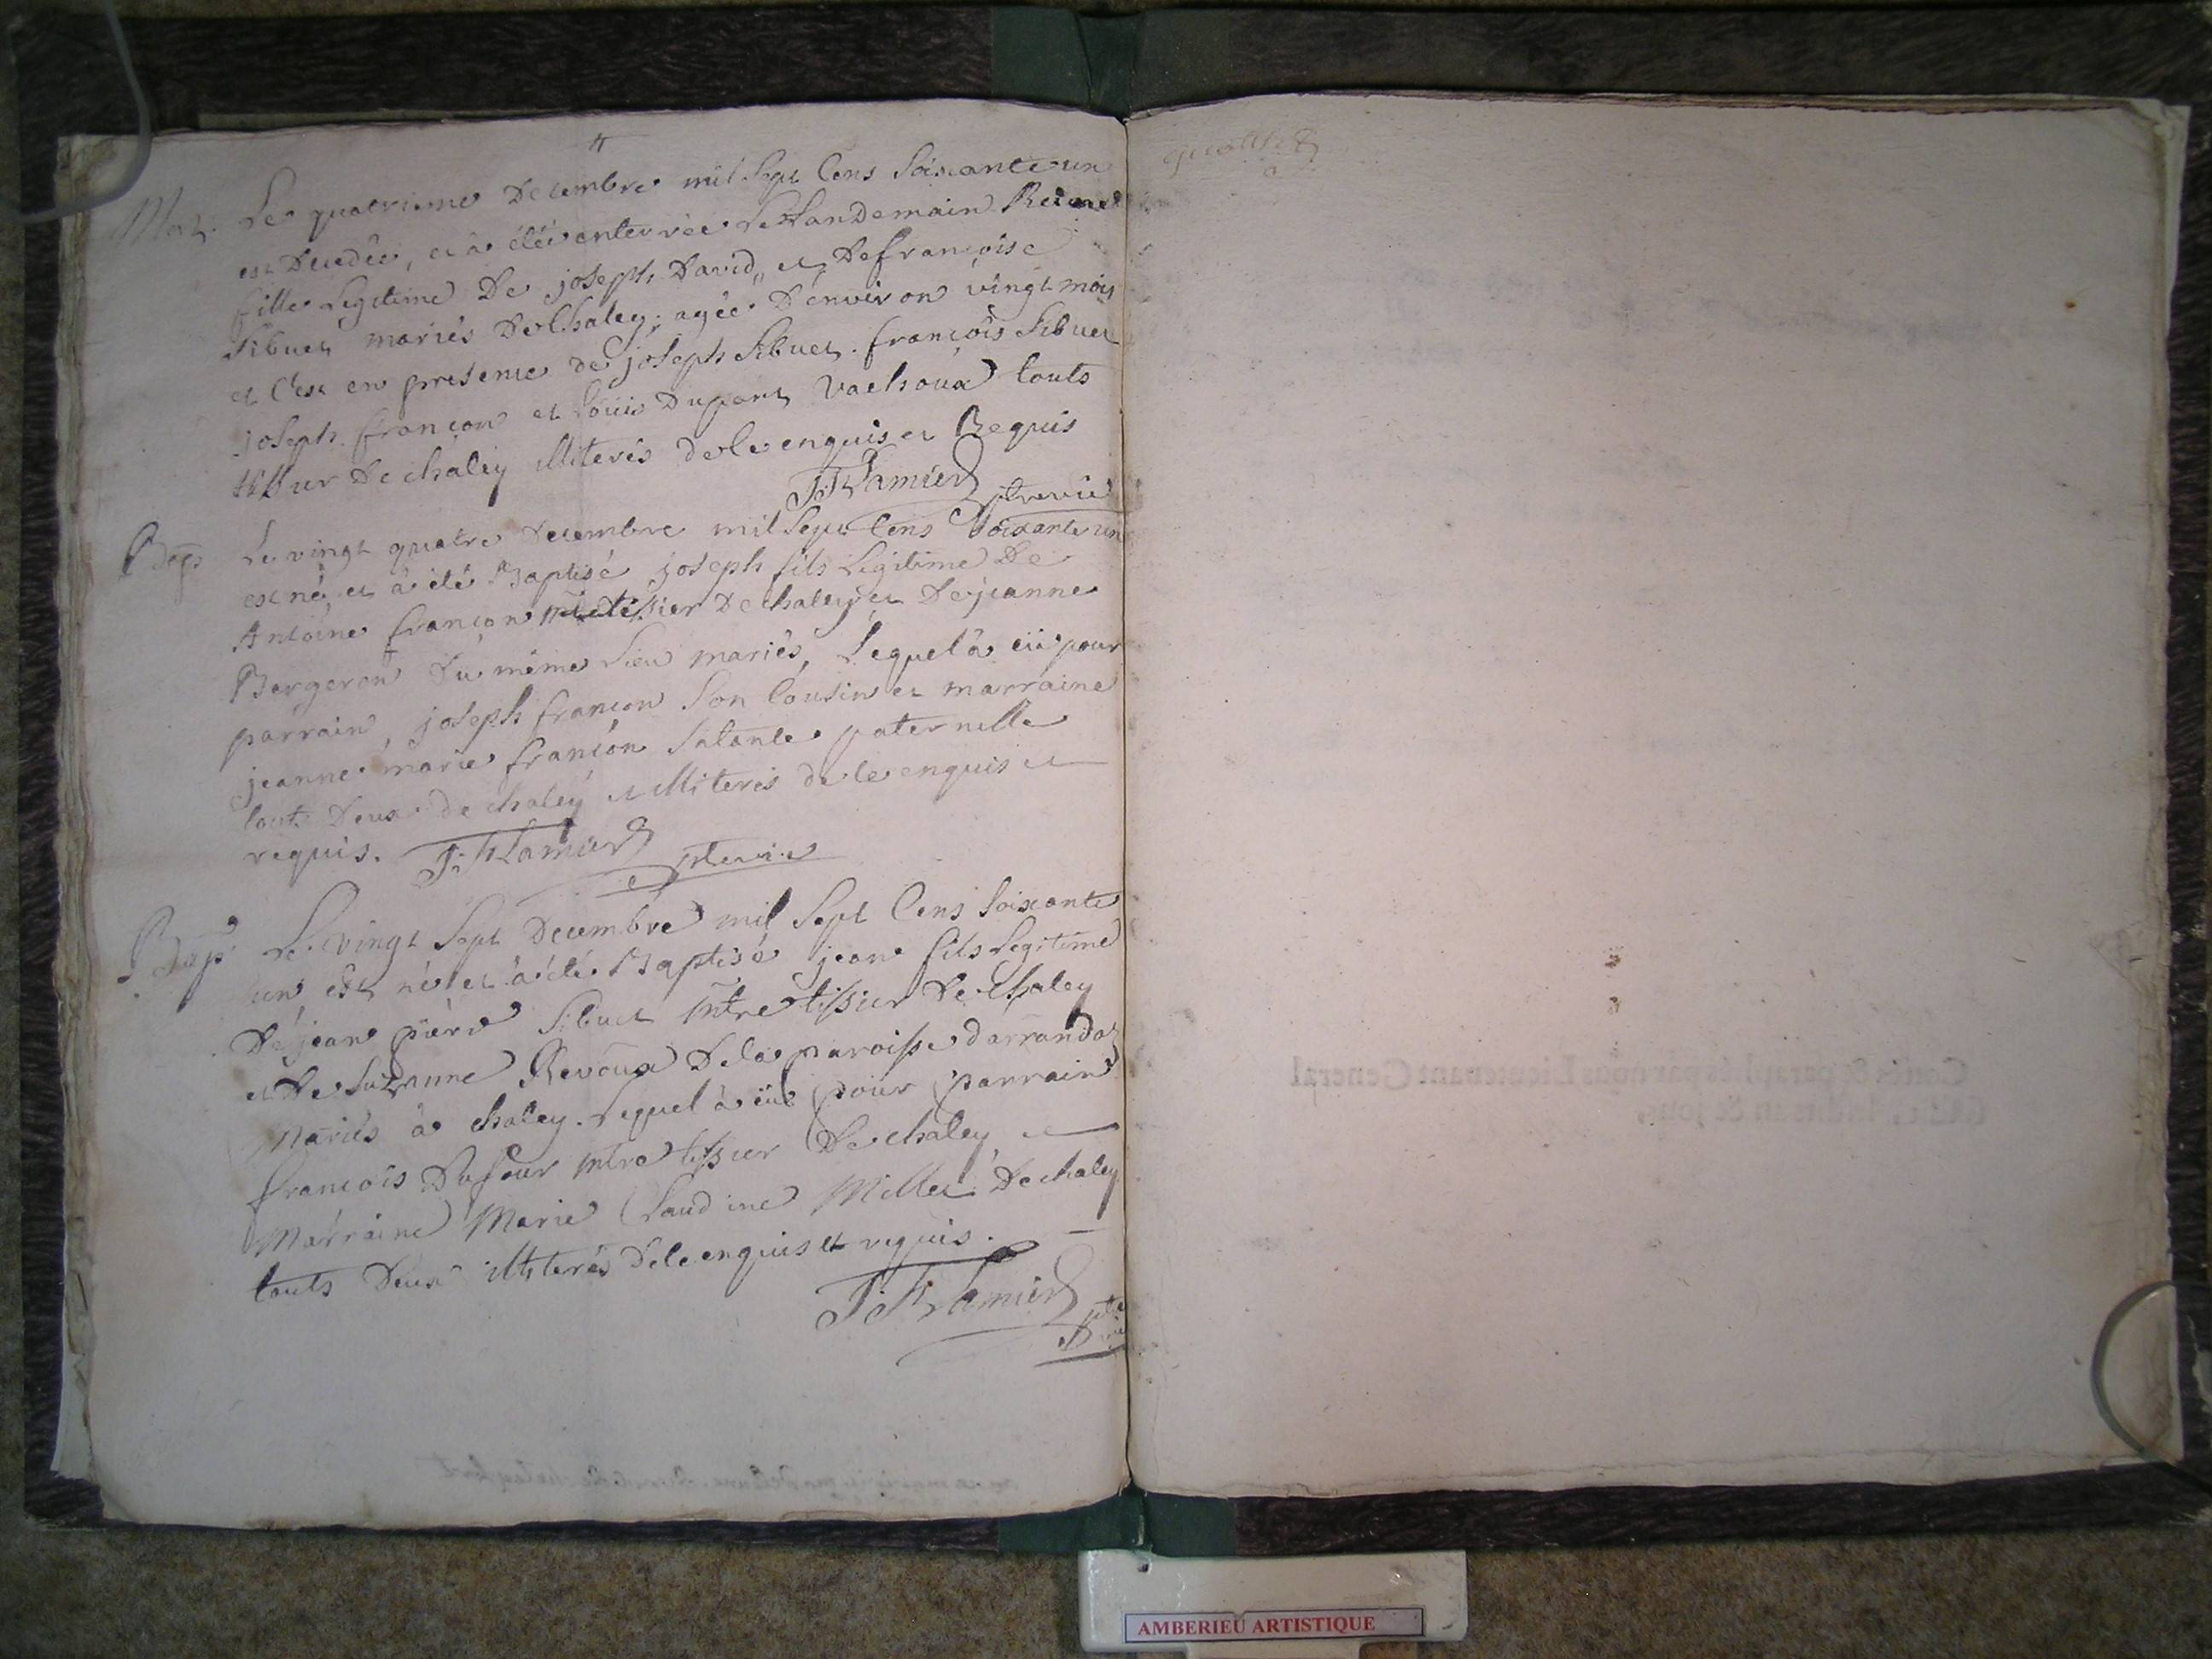 Mort. Le quatrieme Decembre mil Sept Cens Soixante un
est Decedée, et à étéé enterrée Le Landemain Reine
fille Legitime De joseph David, et De françoise
Sibuet mariés De Chaley; agéé D'environ vingt mois
et C'est en presence de joseph Sibuet. françois Sibuet
joseph françon et Loüis Dupont Vachoux touts
sur De chaley illiterés de le enquis et Requis
J: F: Lamier
Bap. Le vingt quatre Decembre mil Sept Cens Soixante un
est né et à été Baptisé joseph fils Legitime De
Antoine françon tissier De chaley et De jeanne
Bergeron Du même Lieu mariés, Lequel à eü pour
parrain, joseph françon Son Cousin et marraine
jeanne marie françon Sa tante paternelle
tout Deux de chaley et illiterés de le enquis et
requis. J: F: Lamier
Bap. Le vingt Sept Decembre mil Sept Cens Soixante
un est né et à été Baptisé jean fils Legitime
De jean pierre Sibuet mtre tissier De chaley
et De Suzanne Revoux De la paroisse d'arrandas
Mariés à chaley. Lequel à eüe pour parrain
françois Dufour mtre tissier De chaley et
Marraine Marie Claudine Millet De chaley
touts Deux illiterés de le enquis et requis.
J: F: Lamier
Cottés & paraphés par nous Lieutenant General
AMBERIEU ARTISTIQUE